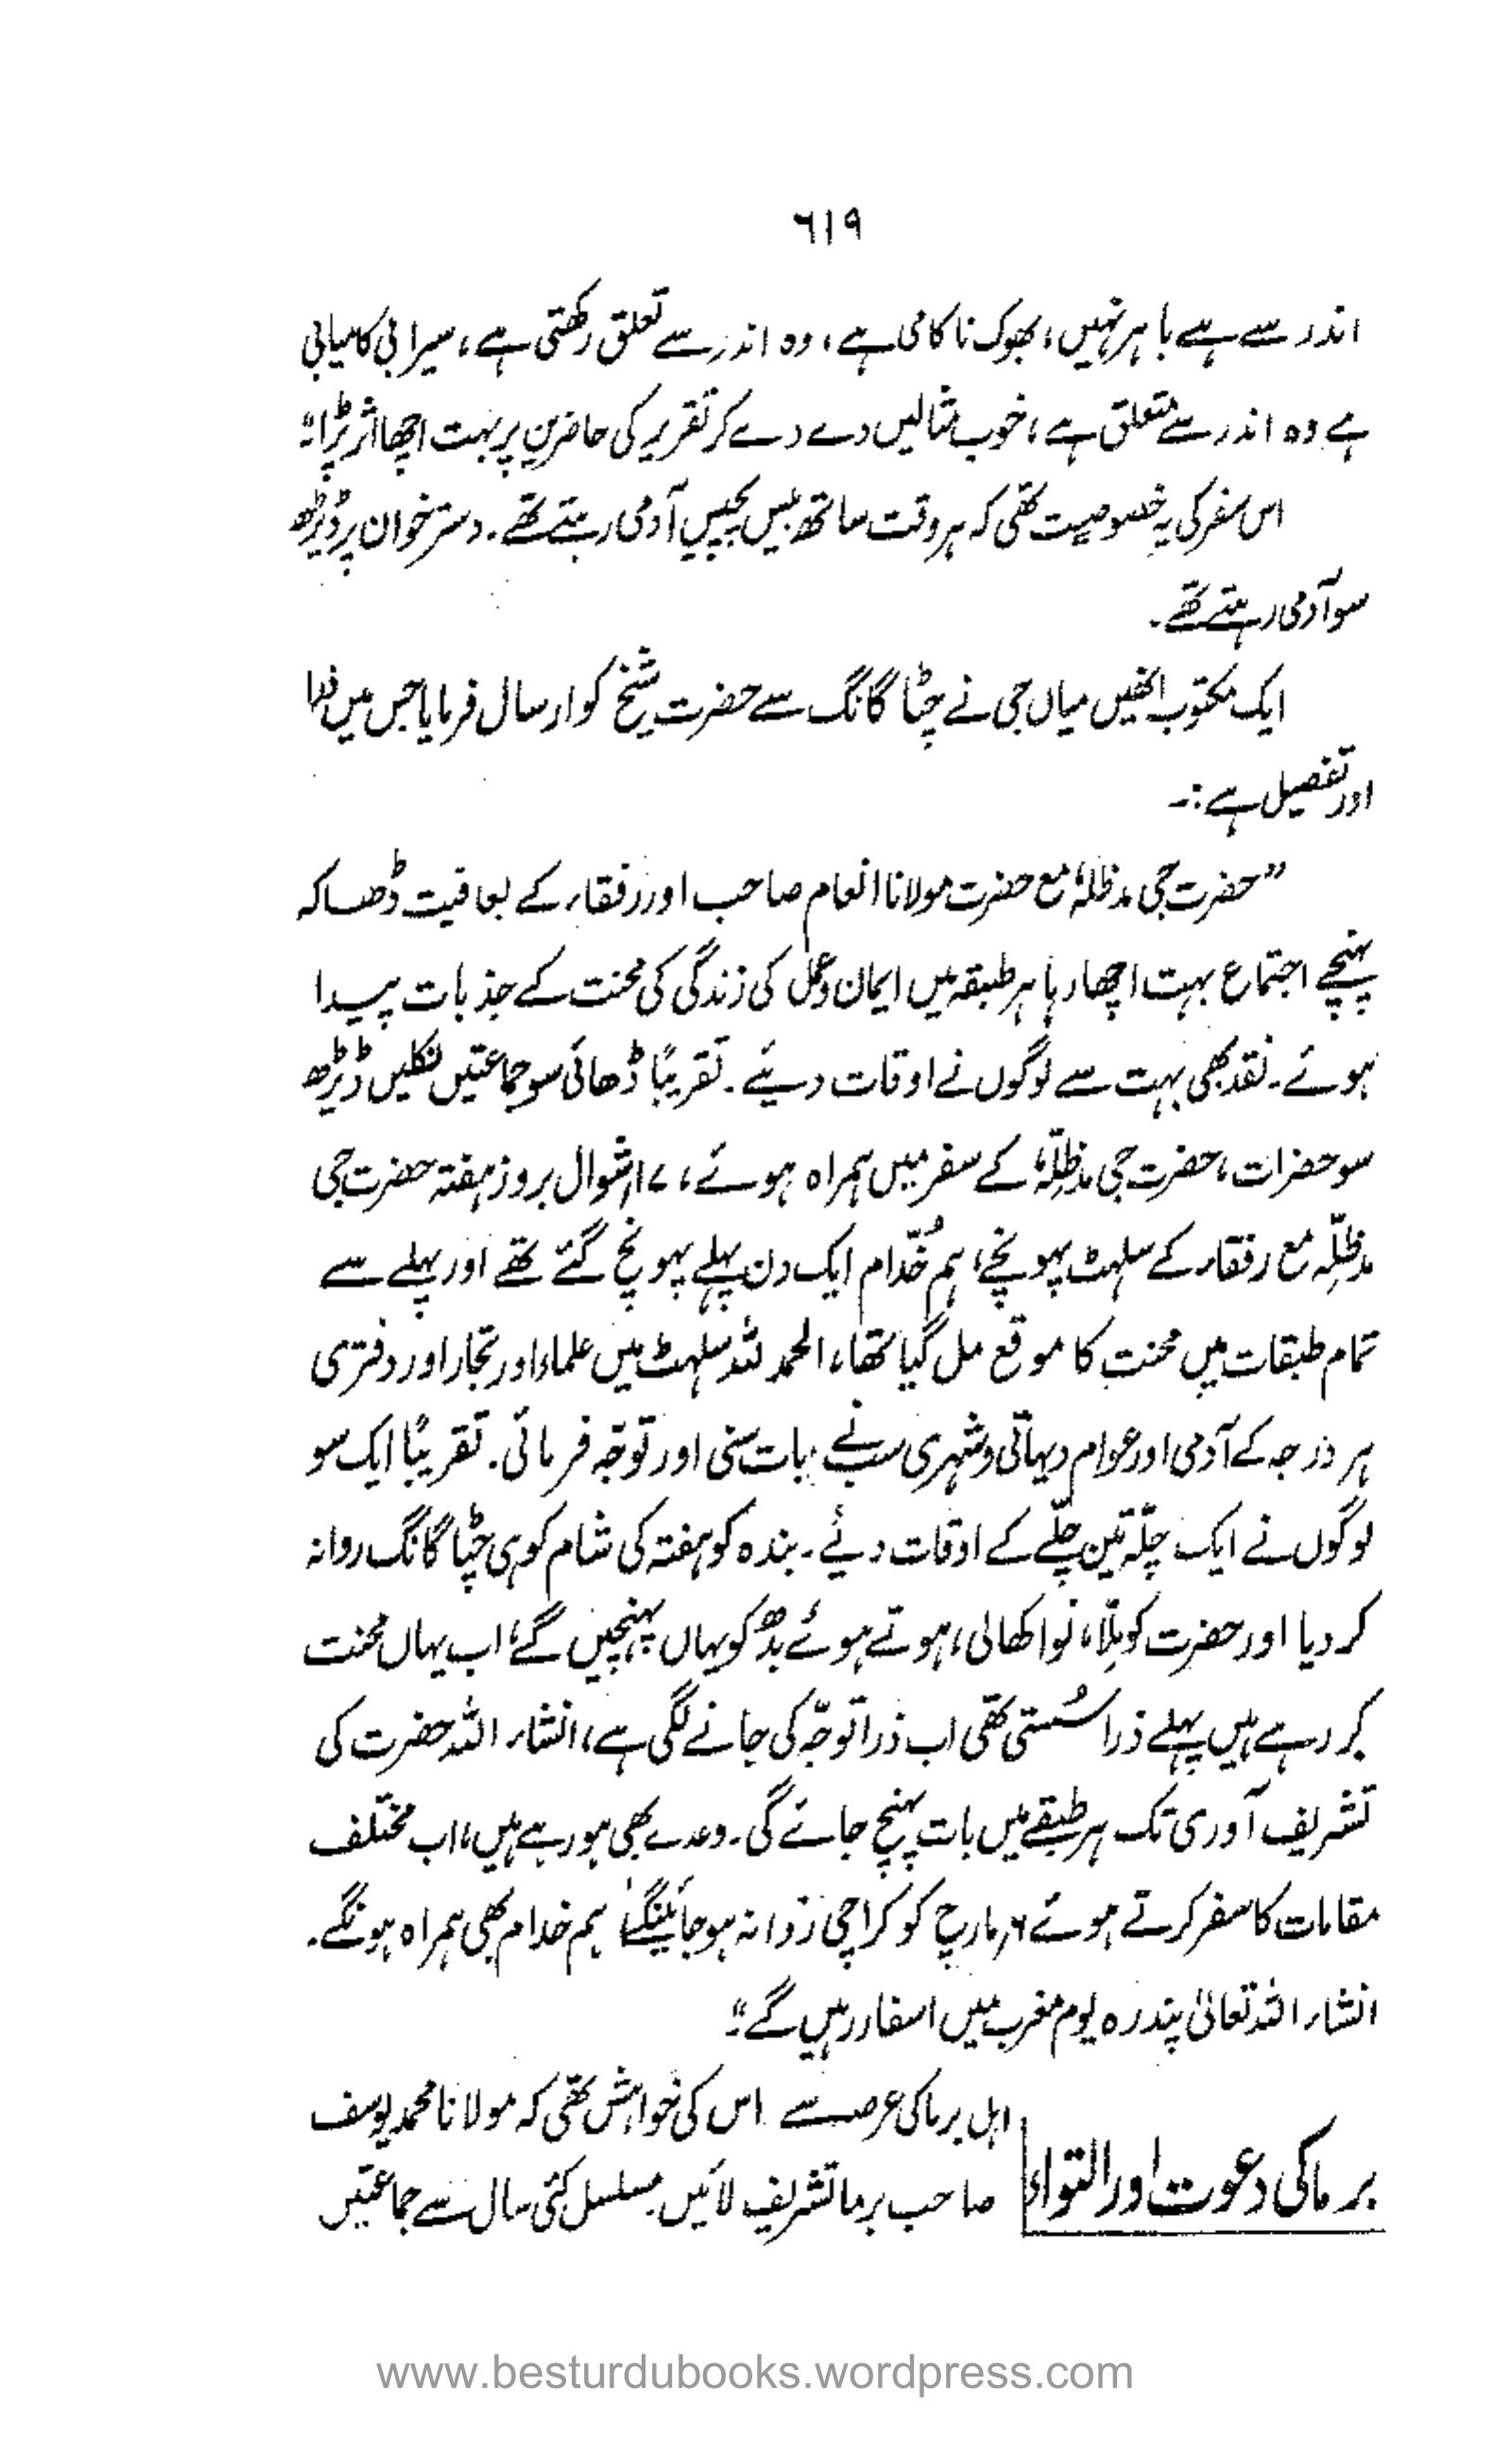 ٦١٩
اندر سے ہے باہر نہیں، بھوک ناکامی ہے، وہ اندر سے تعلق رکھتی ہے، سیرابی کامیابی
ہے وہ اندر سے متعلق ہے، خوب مثالیں دے دے کر تقریر کی حاضرین پر بہت اچھا اثر پڑا۔"
اس سفر کی یہ خصوصیت تھی کہ ہر وقت ساتھ بیس پچیس آدمی رہتے تھے۔ دسترخوان پر ڈیڑھ
سو آدمی رہتے تھے۔
ایک مکتوب انھیں میاں جی نے چٹاگانگ سے حضرت شیخ کو ارسال فرمایا جس میں ذرا
اور تفصیل ہے:۔
"حضرت جی مدظلہٗ مع حضرت مولانا انعام صاحب اور رفقاء کے بعافیت ڈھاکہ
پہنچے اجتماع بہت اچھا رہا ہر طبقہ میں ایمان وعمل کی زندگی کی محنت کے جذبات پیدا
ہوئے۔ نقد بھی بہت سے لوگوں نے اوقات دیئے۔ تقریبًا ڈھائی سو جماعتیں نکلیں ڈیڑھ
سو حضرات، حضرت جی مدظلّہٗ کے سفر میں ہمراہ ہوئے، ۱۷ شوال بروز ہفتہ حضرت جی
مدظلّہ مع رفقاء کے سلہٹ پہونچے، ہم خُدّام ایک دن پہلے پہونچ گئے تھے اور پہلے سے
تمام طبقات میں محنت کا موقع مل گیا تھا، الحمد للہ سلہٹ میں علماء اور تجار اور دفتری
ہر درجہ کے آدمی اور عوام دیہاتی وشہری سب نے بات سنی اور توجّہ فرمائی۔ تقریبًا ایک سو
لوگوں نے ایک چلّہ تین چلّے کے اوقات دئے۔ بندہ کو ہفتہ کی شام کو ہی چٹاگانگ روانہ
کر دیا اور حضرت کوملّا، نواکھالی، ہوتے ہوئے بدھ کو یہاں پہنچیں گے، اب یہاں محنت
کر رہے ہیں پہلے ذرا سُستی تھی اب ذرا توجّہ کی جانے لگی ہے، انشاء اللہ حضرت کی
تشریف آوری تک ہر طبقے میں بات پہنچ جائے گی۔ وعدے بھی ہو رہے ہیں، اب مختلف
مقامات کا سفر کرتے ہوئے ۶ مارچ کو کراچی روانہ ہو جائینگے ہم خدام بھی ہمراہ ہونگے۔
انشاء اللہ تعالیٰ پندرہ یوم مغرب میں اسفار رہیں گے۔"
برما کی دعوت اور التواء
اہل برما کی عرصے سے اس کی خواہش تھی کہ مولانا محمد یوسف
صاحب برما تشریف لائیں مسلسل کئی سال سے جماعتیں
www.besturdubooks.wordpress.com